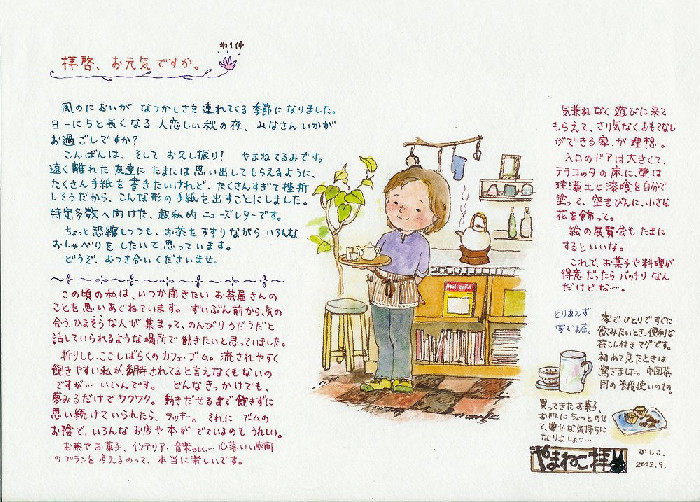 第1作
拝啓、お元気ですか。
風のにおいが なつかしさを連れてくる 季節になりました。
日一にちと長くなる 人恋しい秋の夜、みなさん いかが
お過ごしですか?
こんばんは、そして お久し振り! やまねこてるみです。
遠く離れた 友達に たまには思い出してもらえるように、
たくさん手紙を書きたいけれど、たくさんすぎて挫折
しそうだから、こんな形の手紙を出すことにしました。
特定多数へ向けた、超私的ニューズレターです。
ちょっと恐縮しつつも、お茶をすすりながら いろんな
おしゃべりを したいと 思っています。
どうぞ、おつき合いくださいませ。
この頃の私は、いつか開きたい お茶屋さんの
ことを 思いあぐねています。ずいぶん前から、気の
合う ひまそうな人が 集まって、のんびり うだうだと
話していられるような場所で 働きたいと思っていました。
折りしも、ここしばらくのカフェ・ブーム。流されやすく
飽きやすい私が 翻弄されてると言えなくもないの
ですが… いいんです。 どんなきっかけでも、
夢みるだけで ワクワク。動きだせるまで 飽きずに
思い続けていられたら、ラッキー。それに ブームの
お陰で、いろんな お店や本が でているのも うれしい。
お茶で お菓子、インテリア、音楽
のプランを 考えるのって、本当に楽しいです。
気兼ねなく 遊びに来て
もらえて、さり気なくおもてなし
ができる 家、が 理想。
入口のドアは大きくて、
テラコッタの床に、壁は
珪藻土か漆喰を自分で
塗って、空きびんに、小さな
花を飾って。
絵の展覧会も たまに
するといいな。
これで、お菓子や料理が
得意だったら バッチリなん
だけどねー…
とりあえず
家で ひとりですぐに
飲みたいとき、便利な
茶こし付きマグです。
初めて見たときは
驚きました。中国茶
用の茶器使いつつも。
買ってきたお菓子、
お皿に ちょっとのせ
て、
やまねこ拝
かしこ。